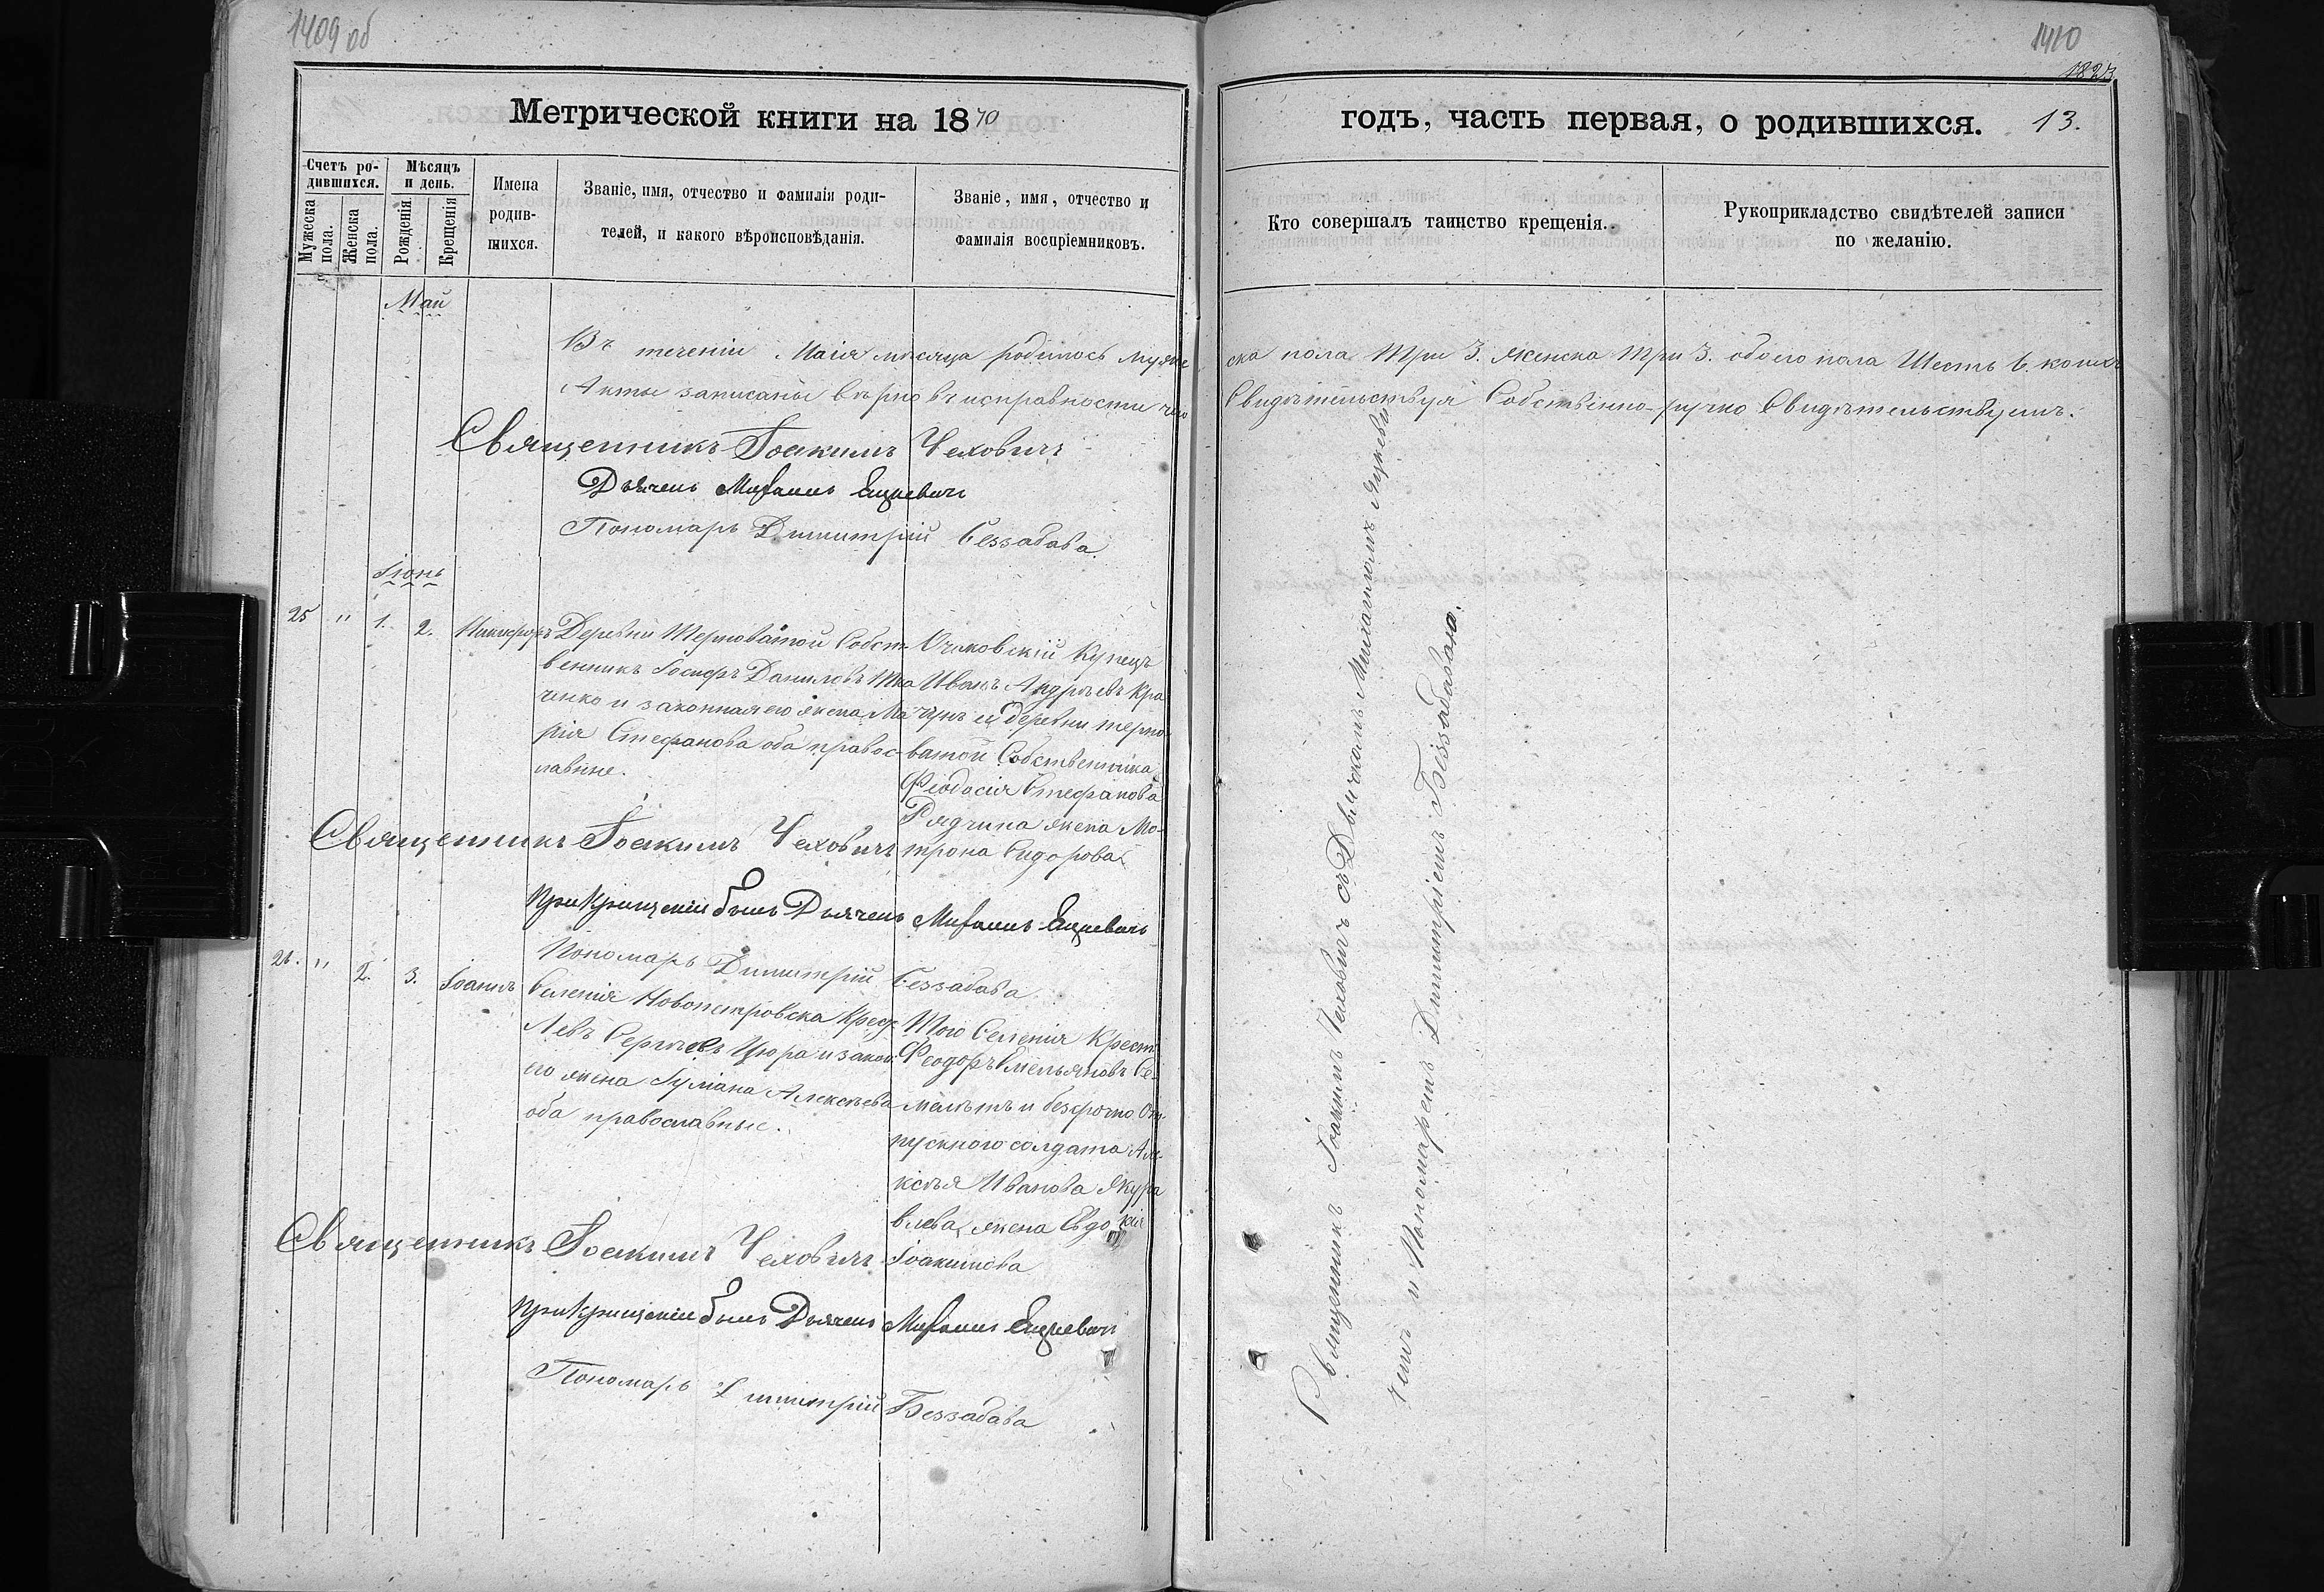 1409 об
Метрической книги на 1870
Счетъ ро-
дившихся.
Мужеска пола.
Женска пола.
Мѣсяцъ
и день.
Рожденія.
Крещенія.
Имена
родив-
шихся.
Званіе, имя, отчество и фамилія роди-
телей, и какого вѣроисповѣданія.
Званіе, имя, отчество и
фамилія воспріемниковъ.
Май
Въ теченіи Маія мѣсяца родилось муже
Акты записаны вѣрно въ исправности чего
Священникъ Іоакимъ Чеховичъ
Дьячекъ Михаилъ Яцкевичъ
Пономаръ Димитрій Беззабава.
Іюнь
25 " 1. 2. Никифоръ
Деревни Терноватой Собст-
венникъ Іосифъ Даниловъ Тка
ченко и законная его жена Ма
рія Стефанова оба правос-
лавные.
Очаковскій Купецъ
Иванъ Андреевъ Кра
и деревни терно
ватой Собственника
Феодосія Стефанова
жена Мо-
трона Сидорова
Священникъ Іоакимъ Чеховичъ
При Крещеніи былъ Дьячекъ Михаилъ Яцкевичъ
Пономаръ Димитрій Беззабава.
26. " 2. 3. Іоаннъ
Селенія Новопетровска Крест
Левъ Сергѣевъ Цюра и закон
его жена Іуліана Алексѣева
оба православные.
Того Селенія Крест
Феодоръ Емельяновъ Се-
и безсрочно От-
пускного солдата Але-
ксѣя Иванова Жура
влева жена Евдокія
Іоакимова
Священникъ Іоакимъ Чеховичъ
При Крещеніи былъ Дьячекъ Михаилъ Яцкевичъ
Пономаръ Димитрій Беззабава
1410
1823
годъ, часть первая, о родившихся. 13.
Кто совершалъ таинство крещенія.
Рукоприкладство свидѣтелей записи
по желанію.
ска пола Три 3. женска Три 3. обоего пола Шесть 6. коихъ
Свидѣтельствуя Собственно-ручно Свидѣтельствуемъ.
Священникъ Іоакимъ Чеховичъ съ Дьячкомъ Михаиломъ Яцкеви
чемъ и Пономаремъ Димитріемъ Беззабавою.